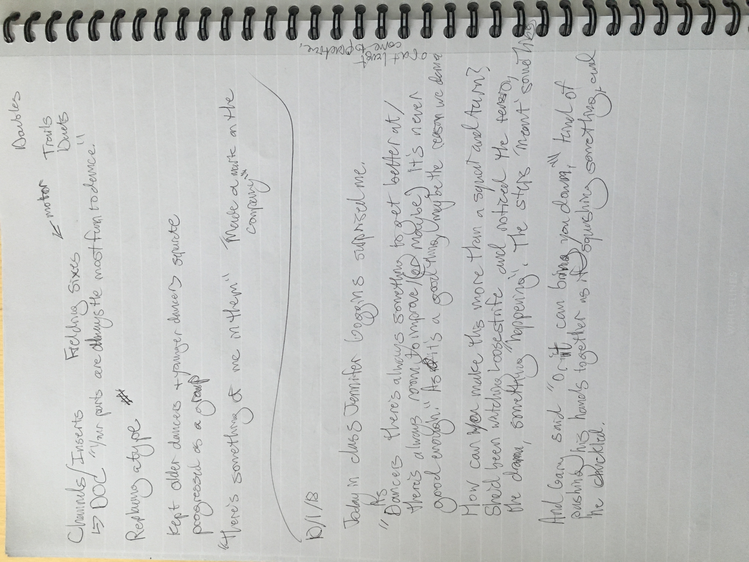 Doubles
Channels/Inserts Fielding Sixes ← motor Trails
Duets
↳ DOC "Your parts are always the most fun to dance."
Replacing a type
Kept older dancers + younger dancers separate
progressed as a group
"there's something of me in them" "Made a mark on the
company"
10/1/18
Today in class Jennifer Goggins surprised me.
As
"Dancers there's always something to get better at/
there's always room to improve/ (or maybe) it's never
good enough." As if it's a good thing, maybe the reason we dance
or at least
come
to practice.
How can you make this more than a squat and turn?
She'd been watching Loosestrife and noticed the tension,
the drama, something "happening". The steps "meant" something.
And Gary said "Or it can bring you down," kind of
pushing his hands together as if squishing something, and
he chuckled.